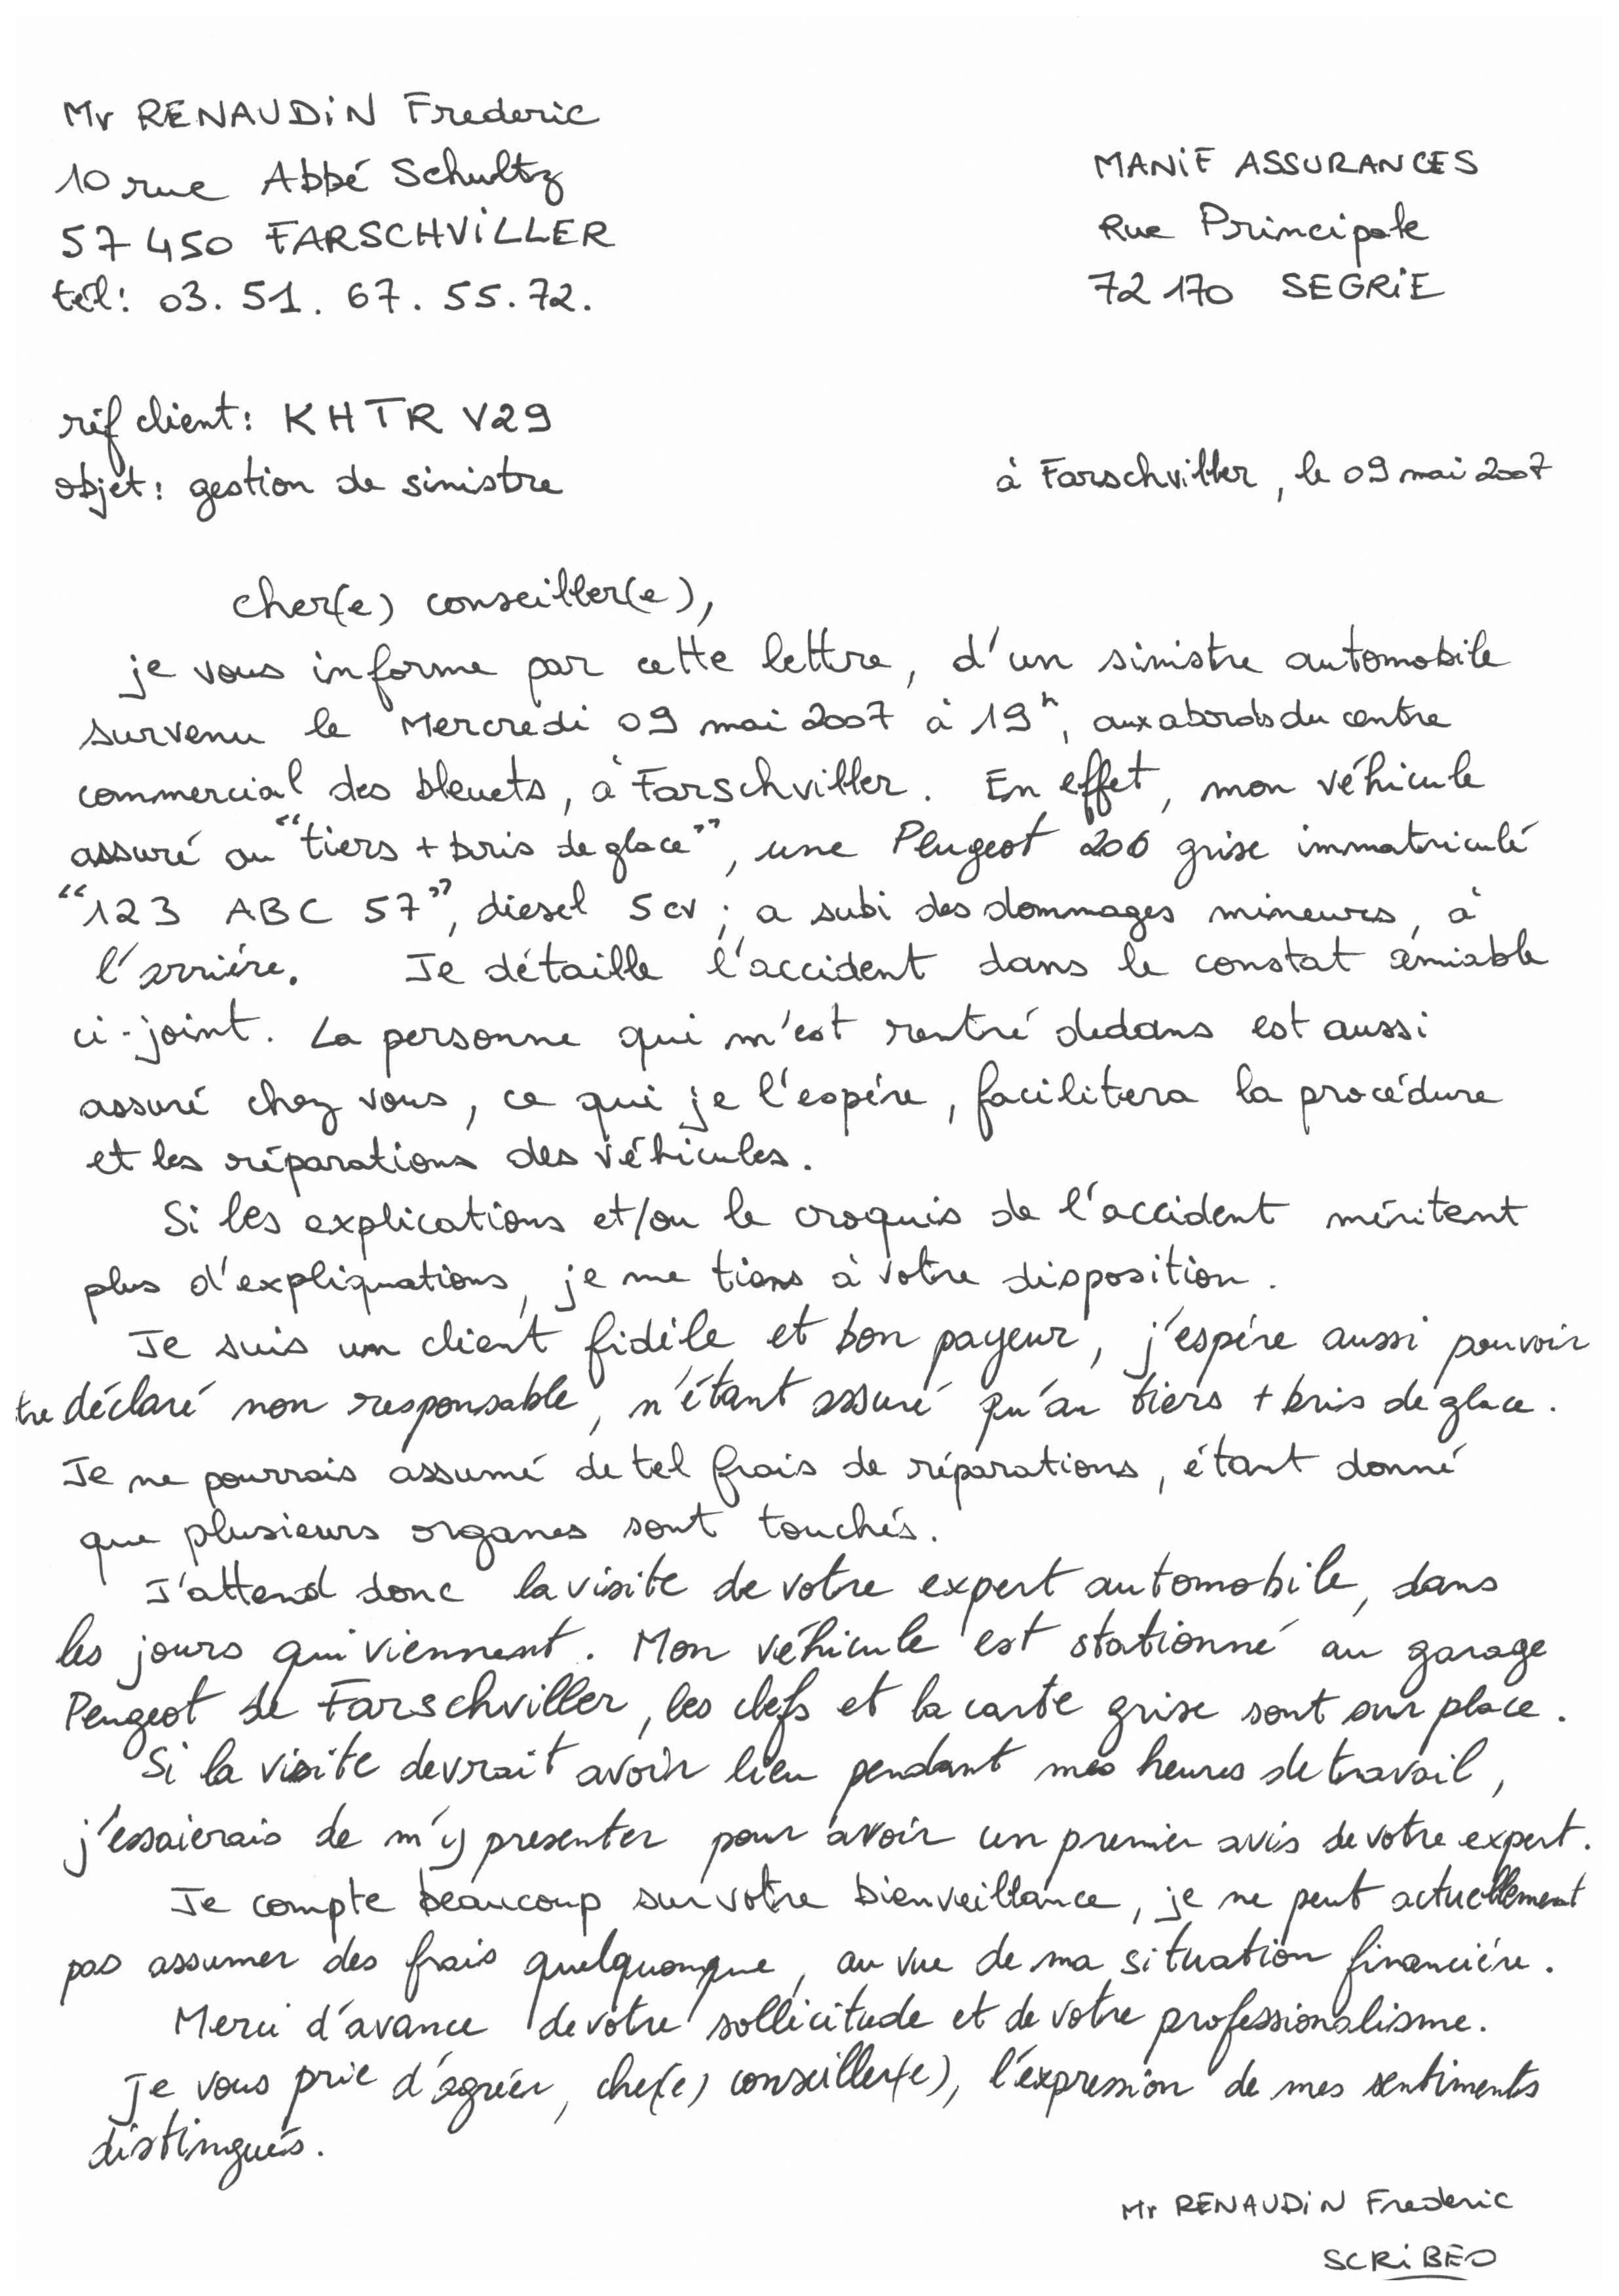 Mr RENAUDIN Frederic
10 rue Abbé Schultz
57450 FARSCHVILLER
tél: 03.51.67.55.72.
MANIF ASSURANCES
Rue Principale
72170 SEGRIE
réf client: KHTR V29
objet: gestion de sinistre
à Farschviller, le 09 mai 2007
cher(e) conseiller(e),
je vous informe par cette lettre, d'un sinistre automobile
survenu le Mercredi 09 mai 2007 à 19h, aux abords du centre
commercial des bleuets, à Farschviller. En effet, mon véhicule
assuré au "tiers + bris de glace", une Peugeot 206 grise immatriculé
"123 ABC 57", diesel 5cv; a subi des dommages mineurs, à
l'arrière. Je détaille l'accident dans le constat amiable
ci-joint. La personne qui m'est rentré dedans est aussi
assuré chez vous, ce qui je l'espère, facilitera la procédure
et les réparations des véhicules.
Si les explications et/ou le croquis de l'accident méritent
plus d'expliquations, je me tiens à votre disposition.
Je suis un client fidèle et bon payeur, j'espère aussi pouvoir
tre déclaré non responsable, n'étant assuré qu'au tiers + bris de glace.
Je ne pourrais assumé de tel frais de réparations, étant donné
que plusieurs organes sont touchés.
J'attend donc la visite de votre expert automobile, dans
les jours qui viennent. Mon véhicule est stationné au garage
Peugeot de Farschviller, les clefs et la carte grise sont sur place.
Si la visite devrait avoir lieu pendant mes heures de travail,
j'essaierais de m'y presenter pour avoir un premier avis de votre expert.
Je compte beaucoup sur votre bienveillance, je ne peut actuellement
pas assumer des frais quelquonque, au vue de ma situation financière.
Merci d'avance de votre sollicitude et de votre professionalisme.
Je vous prie d'agréer, cher(e) conseiller(e), l'expression de mes sentiments
distingués.
Mr RENAUDIN Frederic
SCRIBEO